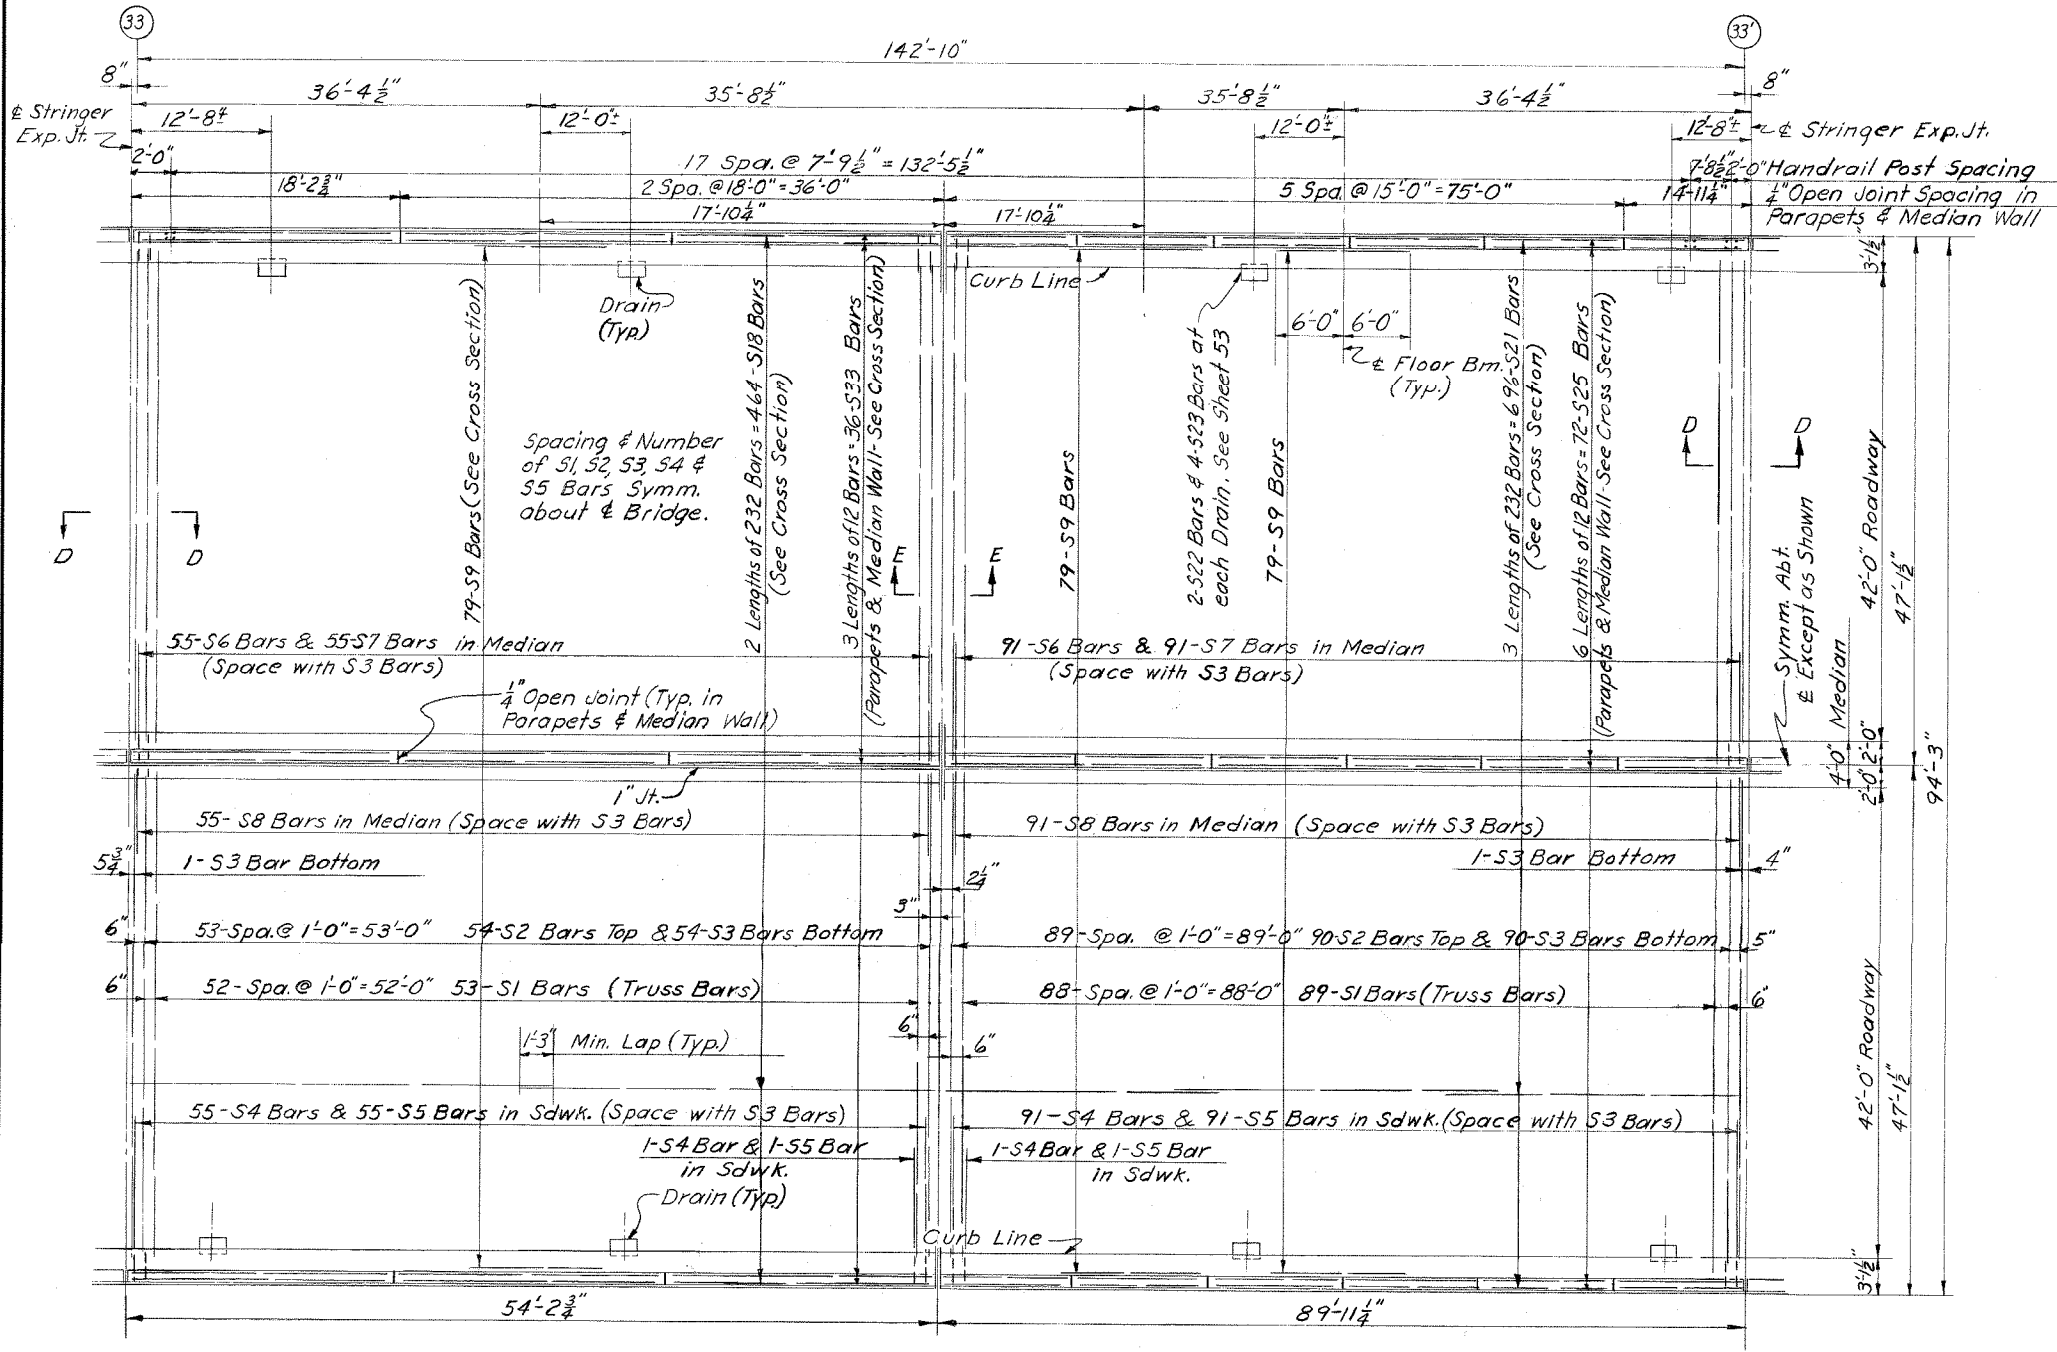 33
33'
142'-10"
8"
8"
36'-4½"
35'-8½"
35'-8½"
36'-4½"
℄ Stringer
Exp. Jt.
12'-8"±
12'-0"±
12'-0"±
12'-8"±
℄ Stringer Exp. Jt.
2'-0"
17 Spa. @ 7'-9½" = 132'-5½"
7'-8½"
2'-0"
Handrail Post Spacing
18'-2¾"
2 Spa. @ 18'-0" = 36'-0"
5 Spa. @ 15'-0" = 75'-0"
14'-11¼"
¼" Open Joint Spacing in
Parapets & Median Wall
17'-10¼"
17'-10¼"
Drain
(Typ.)
Curb Line
6'-0"
6'-0"
℄ Floor Bm.
(Typ.)
79-S9 Bars (See Cross Section)
Spacing & Number
of S1, S2, S3, S4 &
S5 Bars Symm.
about ℄ Bridge.
2 Lengths of 232 Bars = 464-S18 Bars
(See Cross Section)
3 Lengths of 12 Bars = 36-S33 Bars
(Parapets & Median Wall-See Cross Section)
79-S9 Bars
2-S22 Bars & 4-S23 Bars at
each Drain. See Sheet 53
79-S9 Bars
3 Lengths of 232 Bars = 696-S21 Bars
(See Cross Section)
6 Lengths of 12 Bars = 72-S25 Bars
(Parapets & Median Wall-See Cross Section)
D
D
E
E
D
D
3'-1½"
42'-0" Roadway
47'-1½"
Symm. Abt.
℄ Except as Shown
4'-0" Median
2'-0"
2'-0"
94'-3"
55-S6 Bars & 55-S7 Bars in Median
(Space with S3 Bars)
91-S6 Bars & 91-S7 Bars in Median
(Space with S3 Bars)
¼" Open Joint (Typ. in
Parapets & Median Wall)
1" Jt.
55-S8 Bars in Median (Space with S3 Bars)
91-S8 Bars in Median (Space with S3 Bars)
5¾"
1-S3 Bar Bottom
1-S3 Bar Bottom
4"
2¼"
3"
6"
53-Spa. @ 1'-0" = 53'-0" 54-S2 Bars Top & 54-S3 Bars Bottom
89-Spa. @ 1'-0" = 89'-0" 90-S2 Bars Top & 90-S3 Bars Bottom
5"
6"
52-Spa. @ 1'-0" = 52'-0" 53-S1 Bars (Truss Bars)
88-Spa. @ 1'-0" = 88'-0" 89-S1 Bars (Truss Bars)
6"
6"
6"
1'-3" Min. Lap (Typ.)
55-S4 Bars & 55-S5 Bars in Sdwk. (Space with S3 Bars)
91-S4 Bars & 91-S5 Bars in Sdwk. (Space with S3 Bars)
1-S4 Bar & 1-S5 Bar
in Sdwk.
1-S4 Bar & 1-S5 Bar
in Sdwk.
Drain (Typ.)
Curb Line
42'-0" Roadway
47'-1½"
3'-1½"
54'-2¾"
89'-11¼"